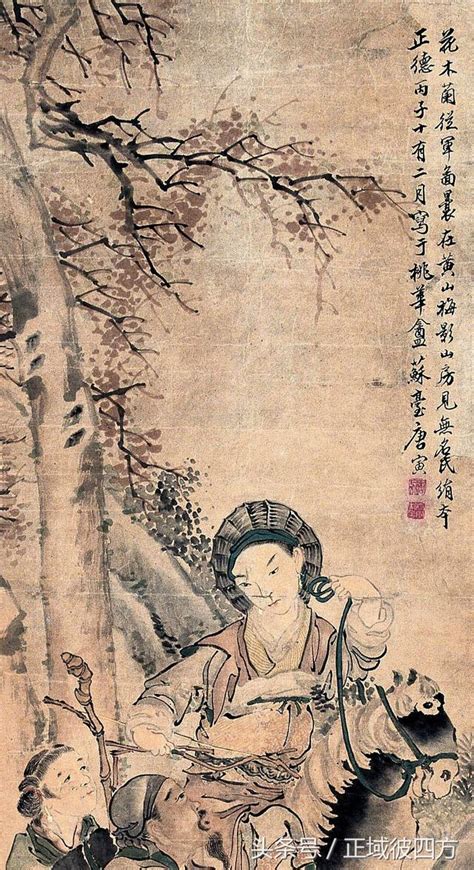 花木蘭從軍畣曩在黄山梅影山房見無名氏絹本
正德丙子十有二月寫于桃華盦蘇臺唐寅
头条号/正域彼四方